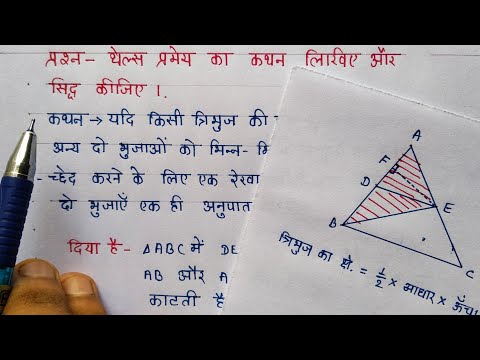 प्रश्न- थेल्स प्रमेय का कथन लिखिए और
सिद्ध कीजिए।.
कथन → यदि किसी त्रिभुज की
अन्य दो भुजाओं को भिन्न-
-च्छेद करने के लिए एक रेखा
दो भुजाएँ एक ही अनुपात
दिया है- △ABC में DE
AB और A
काटती है
A
F
D
E
B
C
त्रिभुज का क्षे. = 1/2 × आधार ×